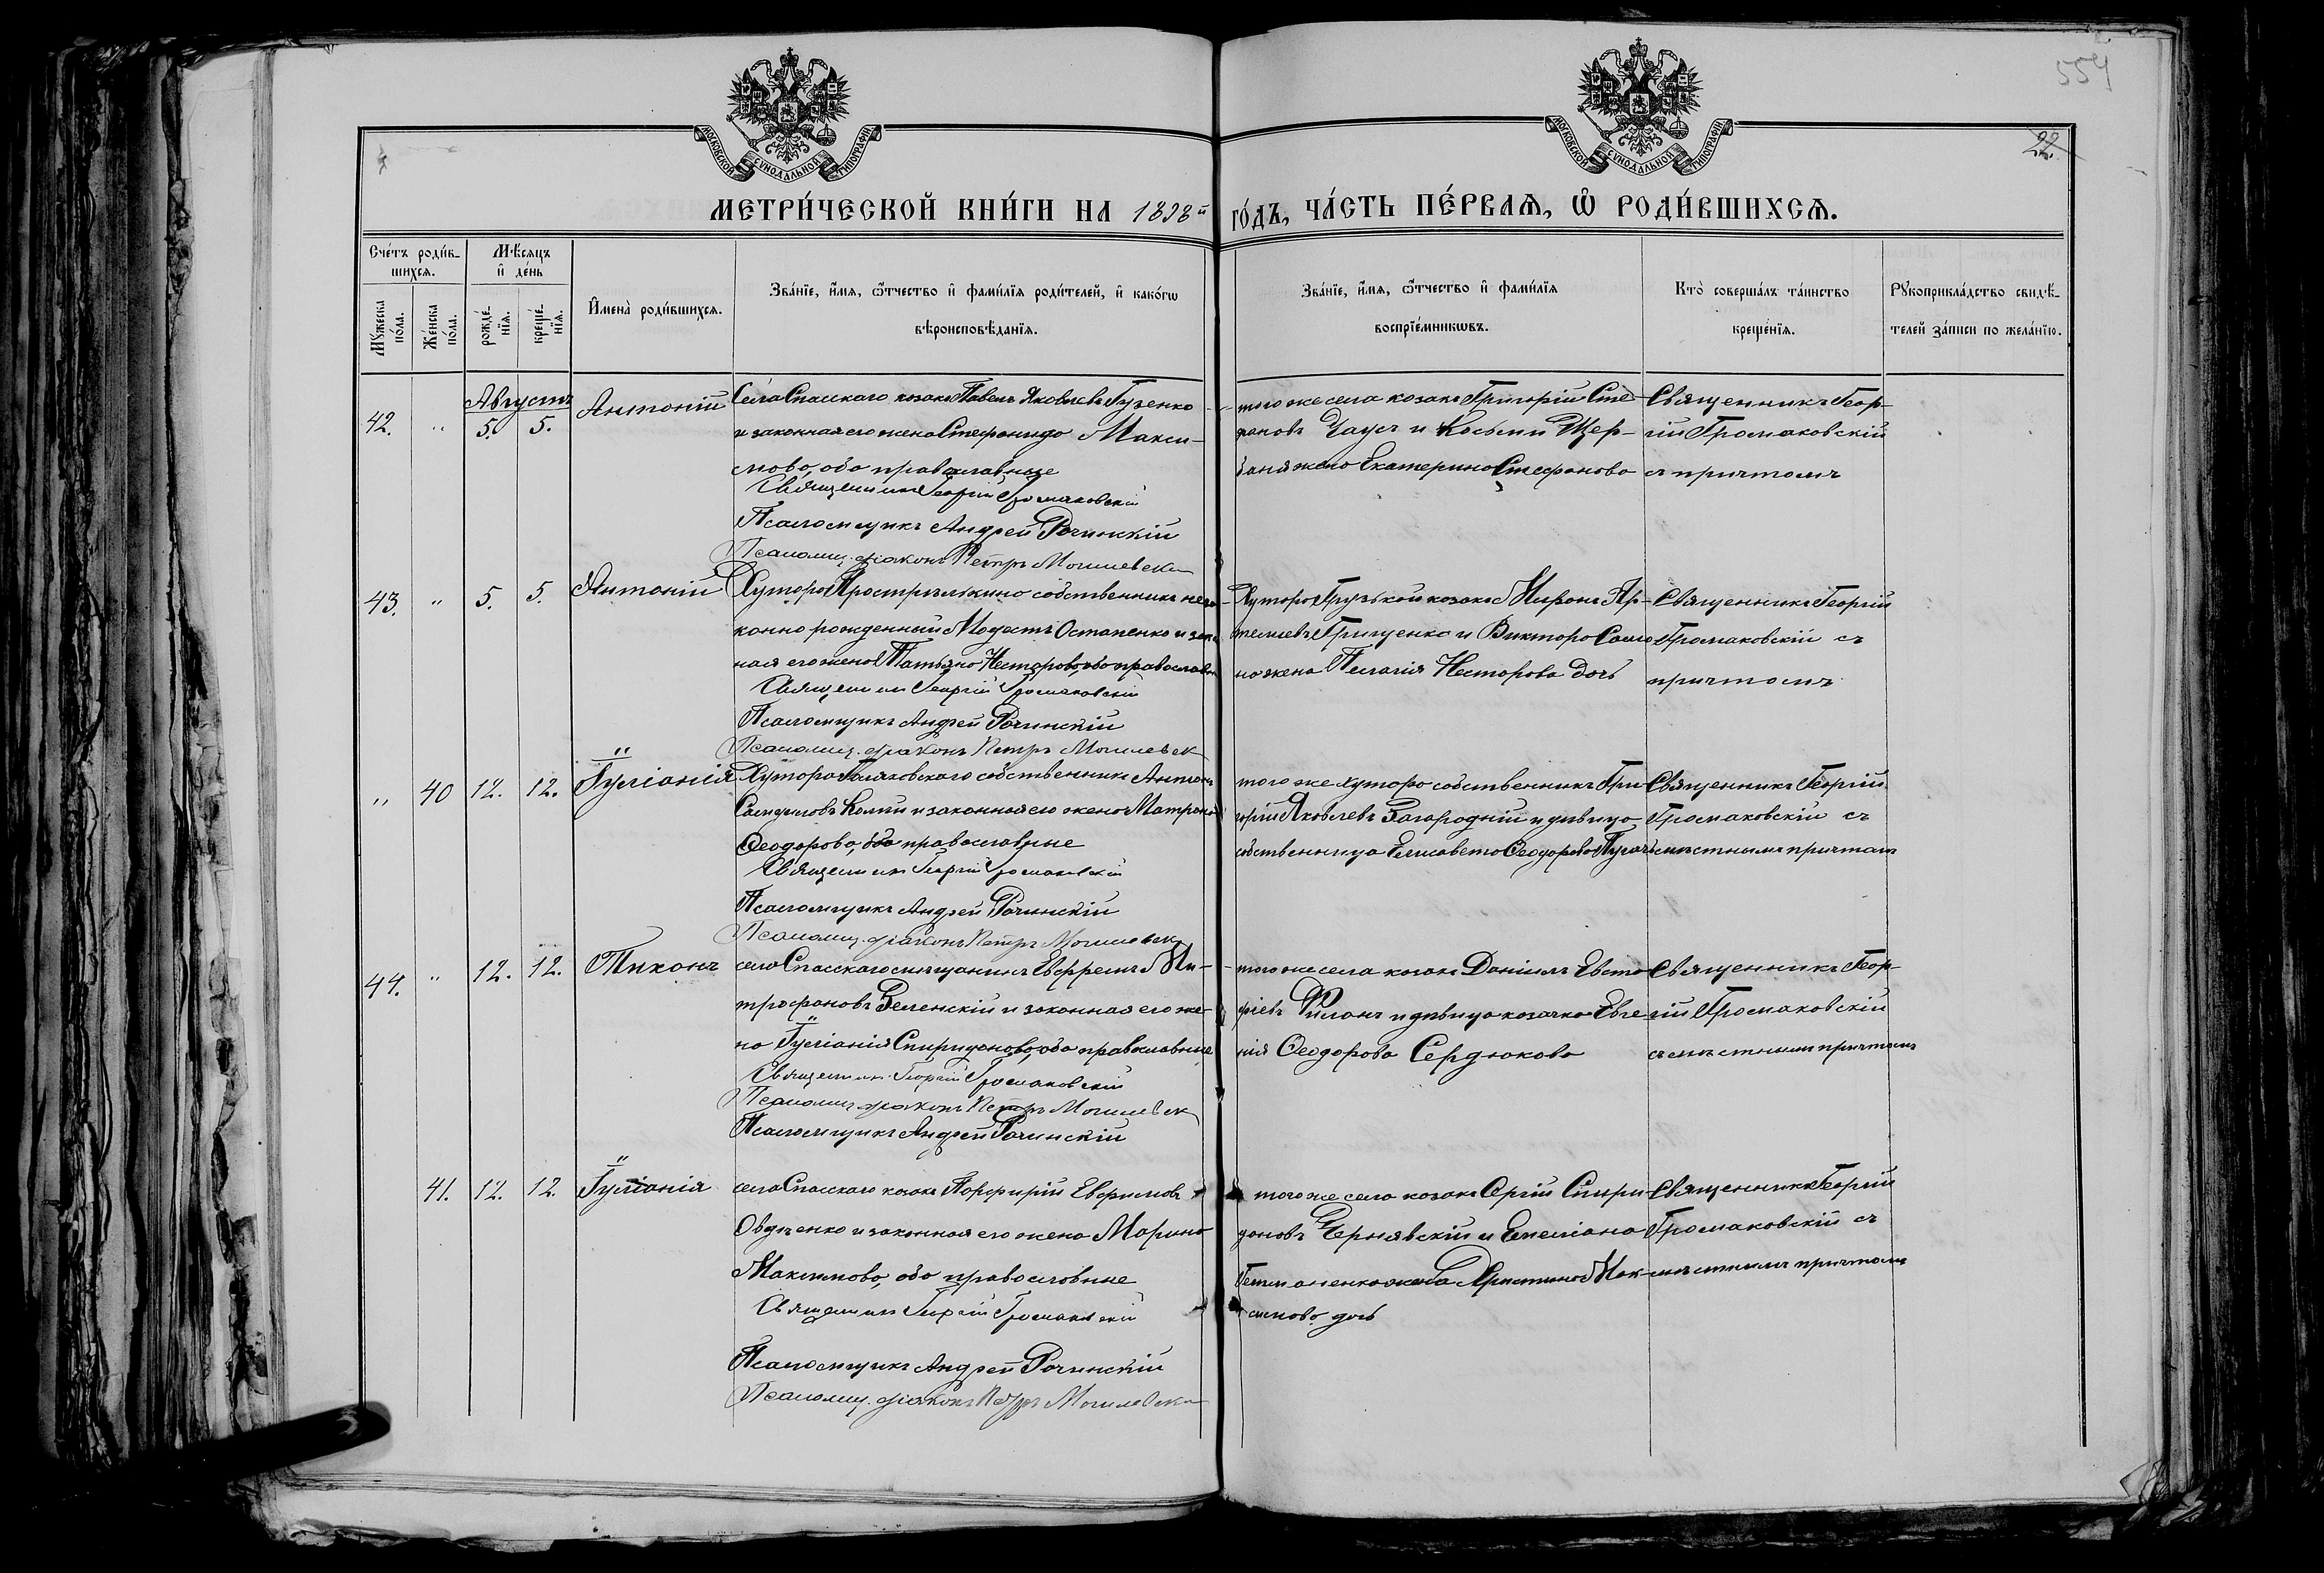 554
22.
МОСКОВСКОЙ СУНОДАЛЬНОЙ ТИПОГРАФІИ
МОСКОВСКОЙ СУНОДАЛЬНОЙ ТИПОГРАФІИ
МЕТРИ́ЧЕСКОЙ КНИ́ГИ НА 1898й го́дъ, ЧА́СТЬ ПЕ́РВАѦ, Ѿ РОДИ́ВШИХСѦ.
Сче́тъ роди́в-
шихсѧ.
Мꙋ́жеска по́ла.
Же́нска по́ла.
Мѣ́сѧцъ
и҆ де́нь
рожде́-
нїѧ.
креще́-
нїѧ.
И҆мена̀ роди́вшихсѧ.
Зва́нїе, и҆́мѧ, ѻ҆́тчество и҆ фами́лїѧ роди́телей, и҆ како́гѡ
вѣроисповѣ́данїѧ.
Зва́нїе, и҆́мѧ, ѻ҆́тчество и҆ фами́лїѧ
воспрїе́мникѡвъ.
Кто̀ соверша́лъ та́инство
креще́нїѧ.
Рꙋкоприкла́дство свидѣ́-
телей за́писи по жела́нїю.
Августъ
42. " 5. 5. Антоній
Села Спасскаго козакъ Павелъ Яковлевъ Гузенко
и законная его жена Стефанида Макси-
мова, оба православные
Священникъ Георгій Громаковскій
Псаломщикъ Андрей Рочинскій
Псаломщ. діаконъ Петръ Могилевскій
того же села козакъ Григорій Сте-
фановъ Чаусъ и Косьмы Щер-
баня жена Екатерина Стефанова
Священникъ Геор-
гій Громаковскій
съ причтомъ
43. " 5. 5. Антоній
Хутора собственникъ неза-
конно рожденный Модестъ Остапенко и закон-
ная его жена Татьяна Несторова, оба православн
Священникъ Георгій Громаковскій
Псаломщикъ Андрей Рочинскій
Псаломщ. діаконъ Петръ Могилевск
Хутора козакъ Миронъ Ар-
темьевъ Грищенко и Виктора
жена Пелагія Несторова дочь
Священникъ Георгій
Громаковскій съ
причтомъ
" 40 12. 12. Іуліанія
Хутора собственникъ Антонъ
и законная его жена Матрона
Ѳеодорова, оба православные
Священникъ Георгій Громаковскій
Псаломщикъ Андрей Рочинскій
Псаломщ. діаконъ Петръ Могилевск
того же хутора собственникъ Гри-
горій Яковлевъ Загородній и дѣвица
собственница Елисавета Ѳеодорова
Священникъ Георгій
Громаковскій съ
мѣстнымъ причтомъ
44. " 12. 12. Тихонъ
села Спасскаго мѣщанинъ Евфремъ Ми-
трофановъ Зеленскій и законная его же-
на Іуліанія Спиридонова, оба православные
Священникъ Георгій Громаковскій
Псаломщ діаконъ Петръ Могилевск
Псаломщикъ Андрей Рочинскій
того же села козакъ Даніилъ Евста-
фіевъ и дѣвица козачка Евге-
нія Ѳеодорова Сердюкова
Священникъ Геор-
гій Громаковскій
съ мѣстнымъ причтомъ
41. 12. 12. Іуліанія
села Спасскаго козакъ Порфирій Евфимовъ
Овдѣенко и законная его жена Марина
Максимова, оба православные
Священникъ Георгій Громаковскій
Псаломщикъ Андрей Рочинскій
Псаломщ. діаконъ Петръ Могилевскій
того же села козакъ Сергій Спири-
доновъ Чернявскій и Емеліана
жена Христина Мак-
симова дочь
Священникъ Георгій
Громаковскій съ
мѣстнымъ причтомъ